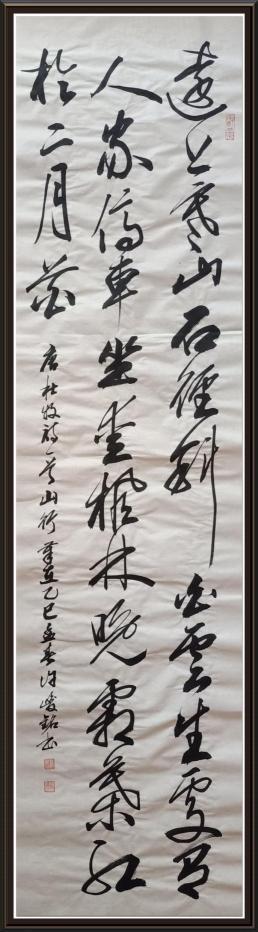 遠上寒山石徑斜白雲生處有
人家停車坐愛楓林晚霜葉紅
於二月花
唐杜牧詩一首山行歲在乙巳孟春許峻銘書